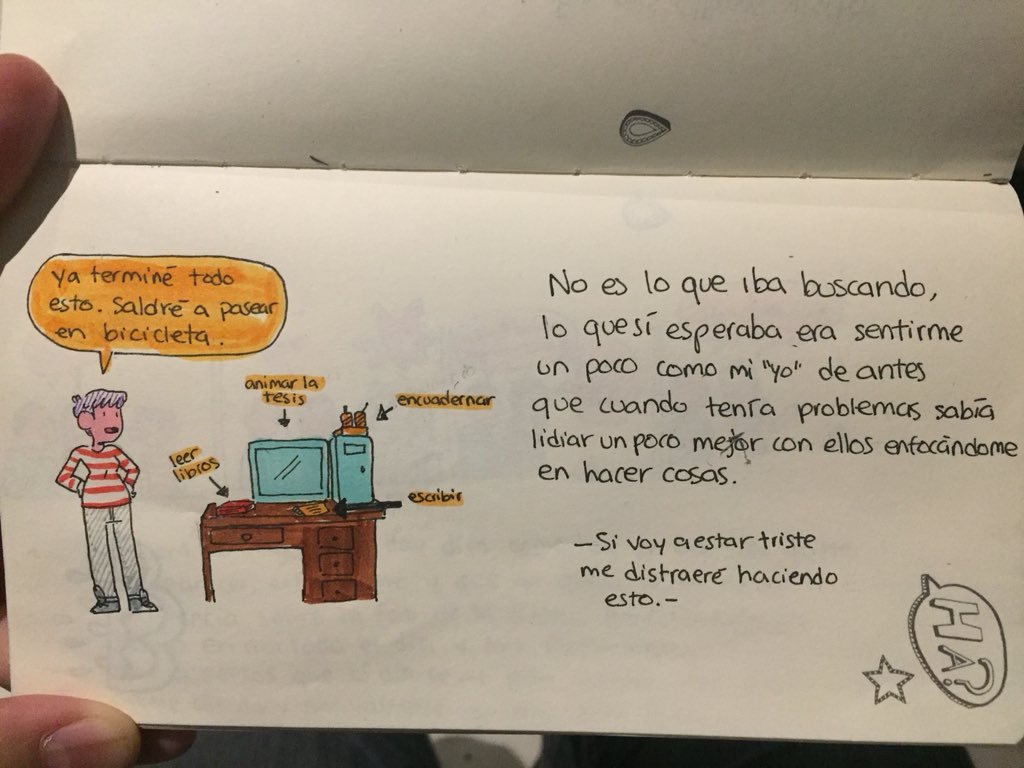 Ya terminé todo
esto. Saldré a pasear
en bicicleta.
animar la
tesis
encuadernar
leer
libros
escribir
No es lo que iba buscando,
lo que sí esperaba era sentirme
un poco como mi "yo" de antes
que cuando tenía problemas sabía
lidiar un poco mejor con ellos enfocándome
en hacer cosas.
—Si voy a estar triste
me distraeré haciendo
esto.—
HA?